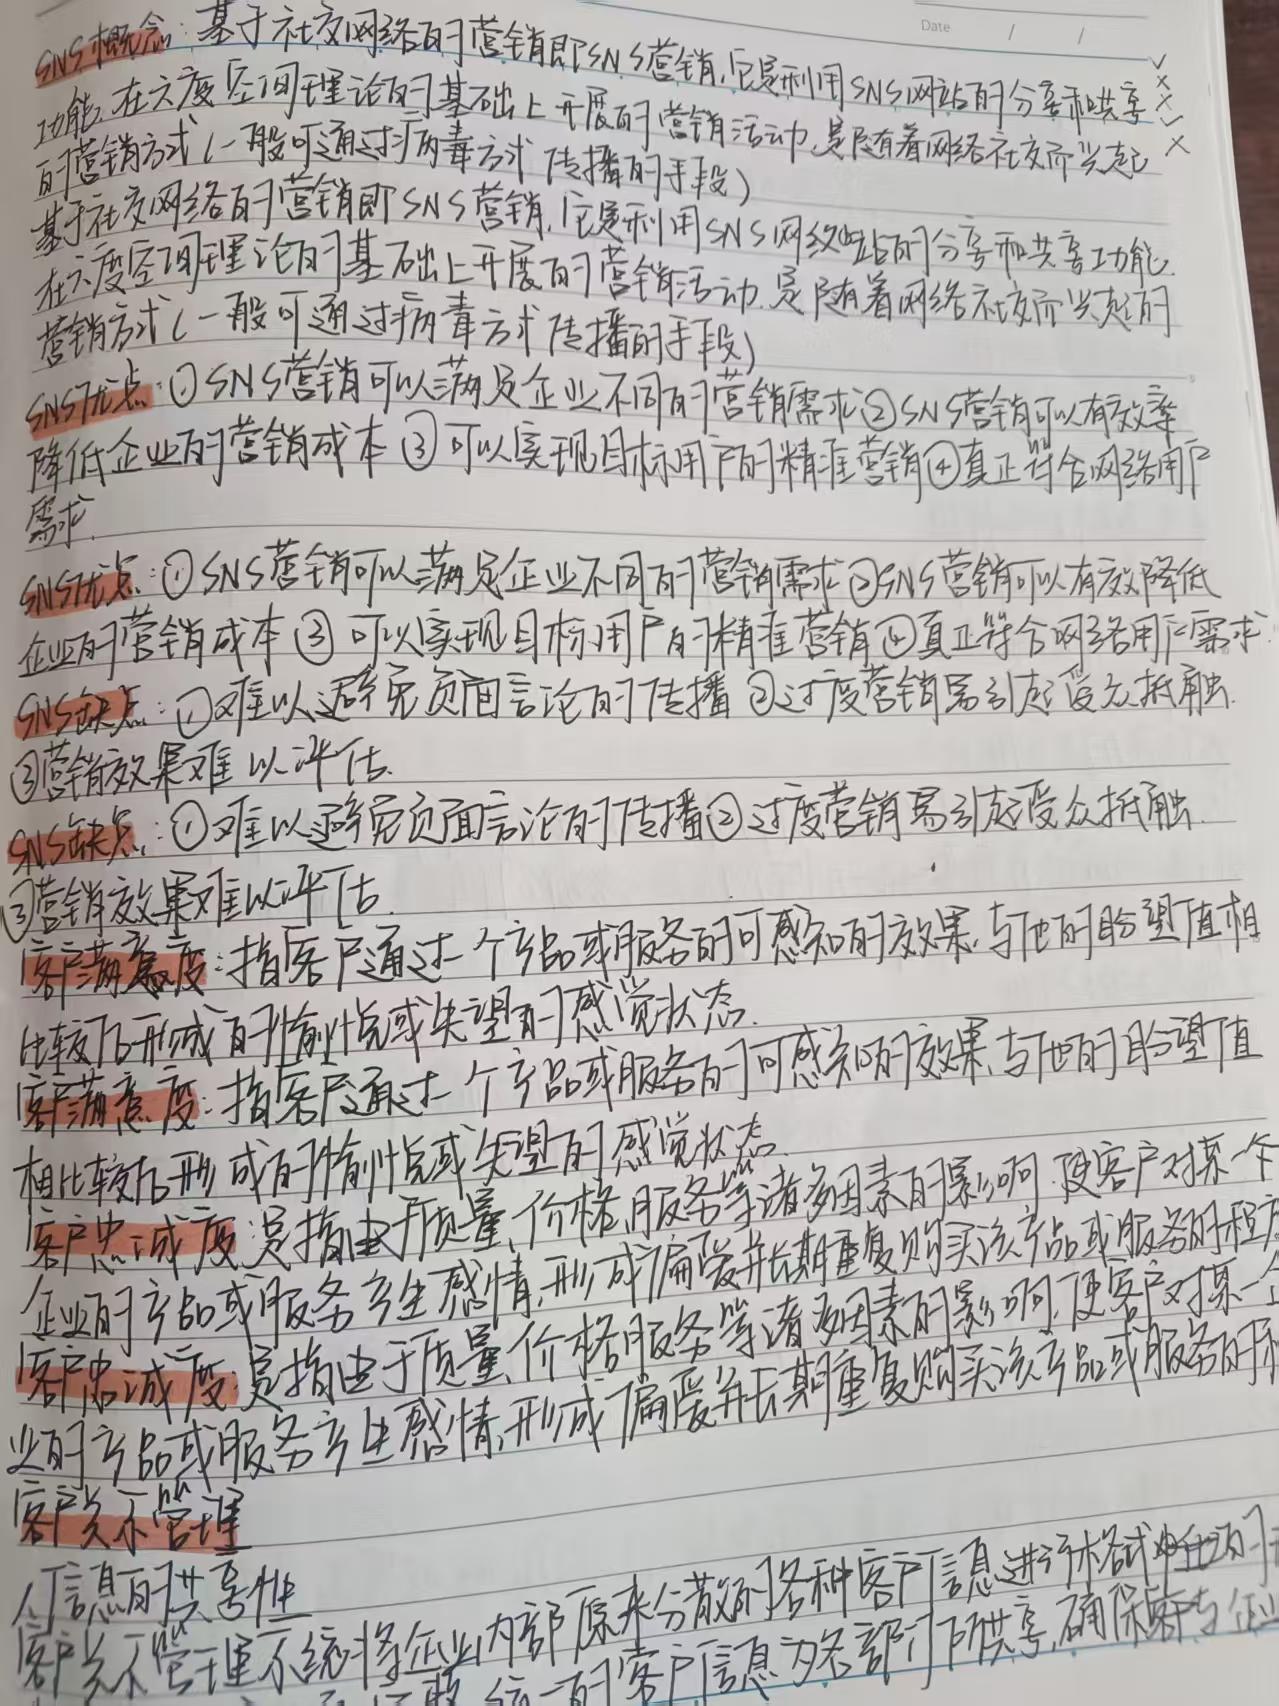 Date / /
SNS概念：基于社交网络的营销即SNS营销，它是利用SNS网站的分享和共享
功能，在六度空间理论的基础上开展的营销活动，是随着网络社交而兴起
的营销方式（一般可通过病毒方式传播的手段）
基于社交网络的营销即SNS营销，它是利用SNS网络站的分享和共享功能，
在六度空间理论的基础上开展的营销活动，是随着网络社交而兴起的
营销方式（一般可通过病毒方式传播的手段）
SNS优点：①SNS营销可以满足企业不同的营销需求②SNS营销可以有效率
降低企业的营销成本③可以实现目标用户的精准营销④真正符合网络用户
需求.
SNS优点：①SNS营销可以满足企业不同的营销需求②SNS营销可以有效降低
企业的营销成本③可以实现目标用户的精准营销④真正符合网络用户需求.
SNS缺点：①难以避免页面言论的传播②过度营销易引起受众抵触.
③营销效果难以评估.
SNS缺点：①难以避免页面言论的传播②过度营销易引起受众抵触.
③营销效果难以评估.
客户满意度：指客户通过一个产品或服务的可感知的效果，与他的盼望值相
比较后形成的愉悦或失望的感觉状态.
客户满意度：指客户通过一个产品或服务的可感知的效果，与他的盼望值
相比较后形成的愉悦或失望的感觉状态.
客户忠诚度：是指由于质量、价格、服务等诸多因素的影响，使客户对某一个
企业的产品或服务产生感情，形成偏爱并长期重复购买该产品或服务的程度
客户忠诚度：是指由于质量、价格服务等诸多因素的影响，使客户对某一企
业的产品或服务产生感情，形成偏爱并长期重复购买该产品或服务的
客户关系管理
信息的共享性
客户关系管理系统将企业内部原来分散的各种客户信息进行格式
统一的客户信息为各部门所共享，确保客户与企业